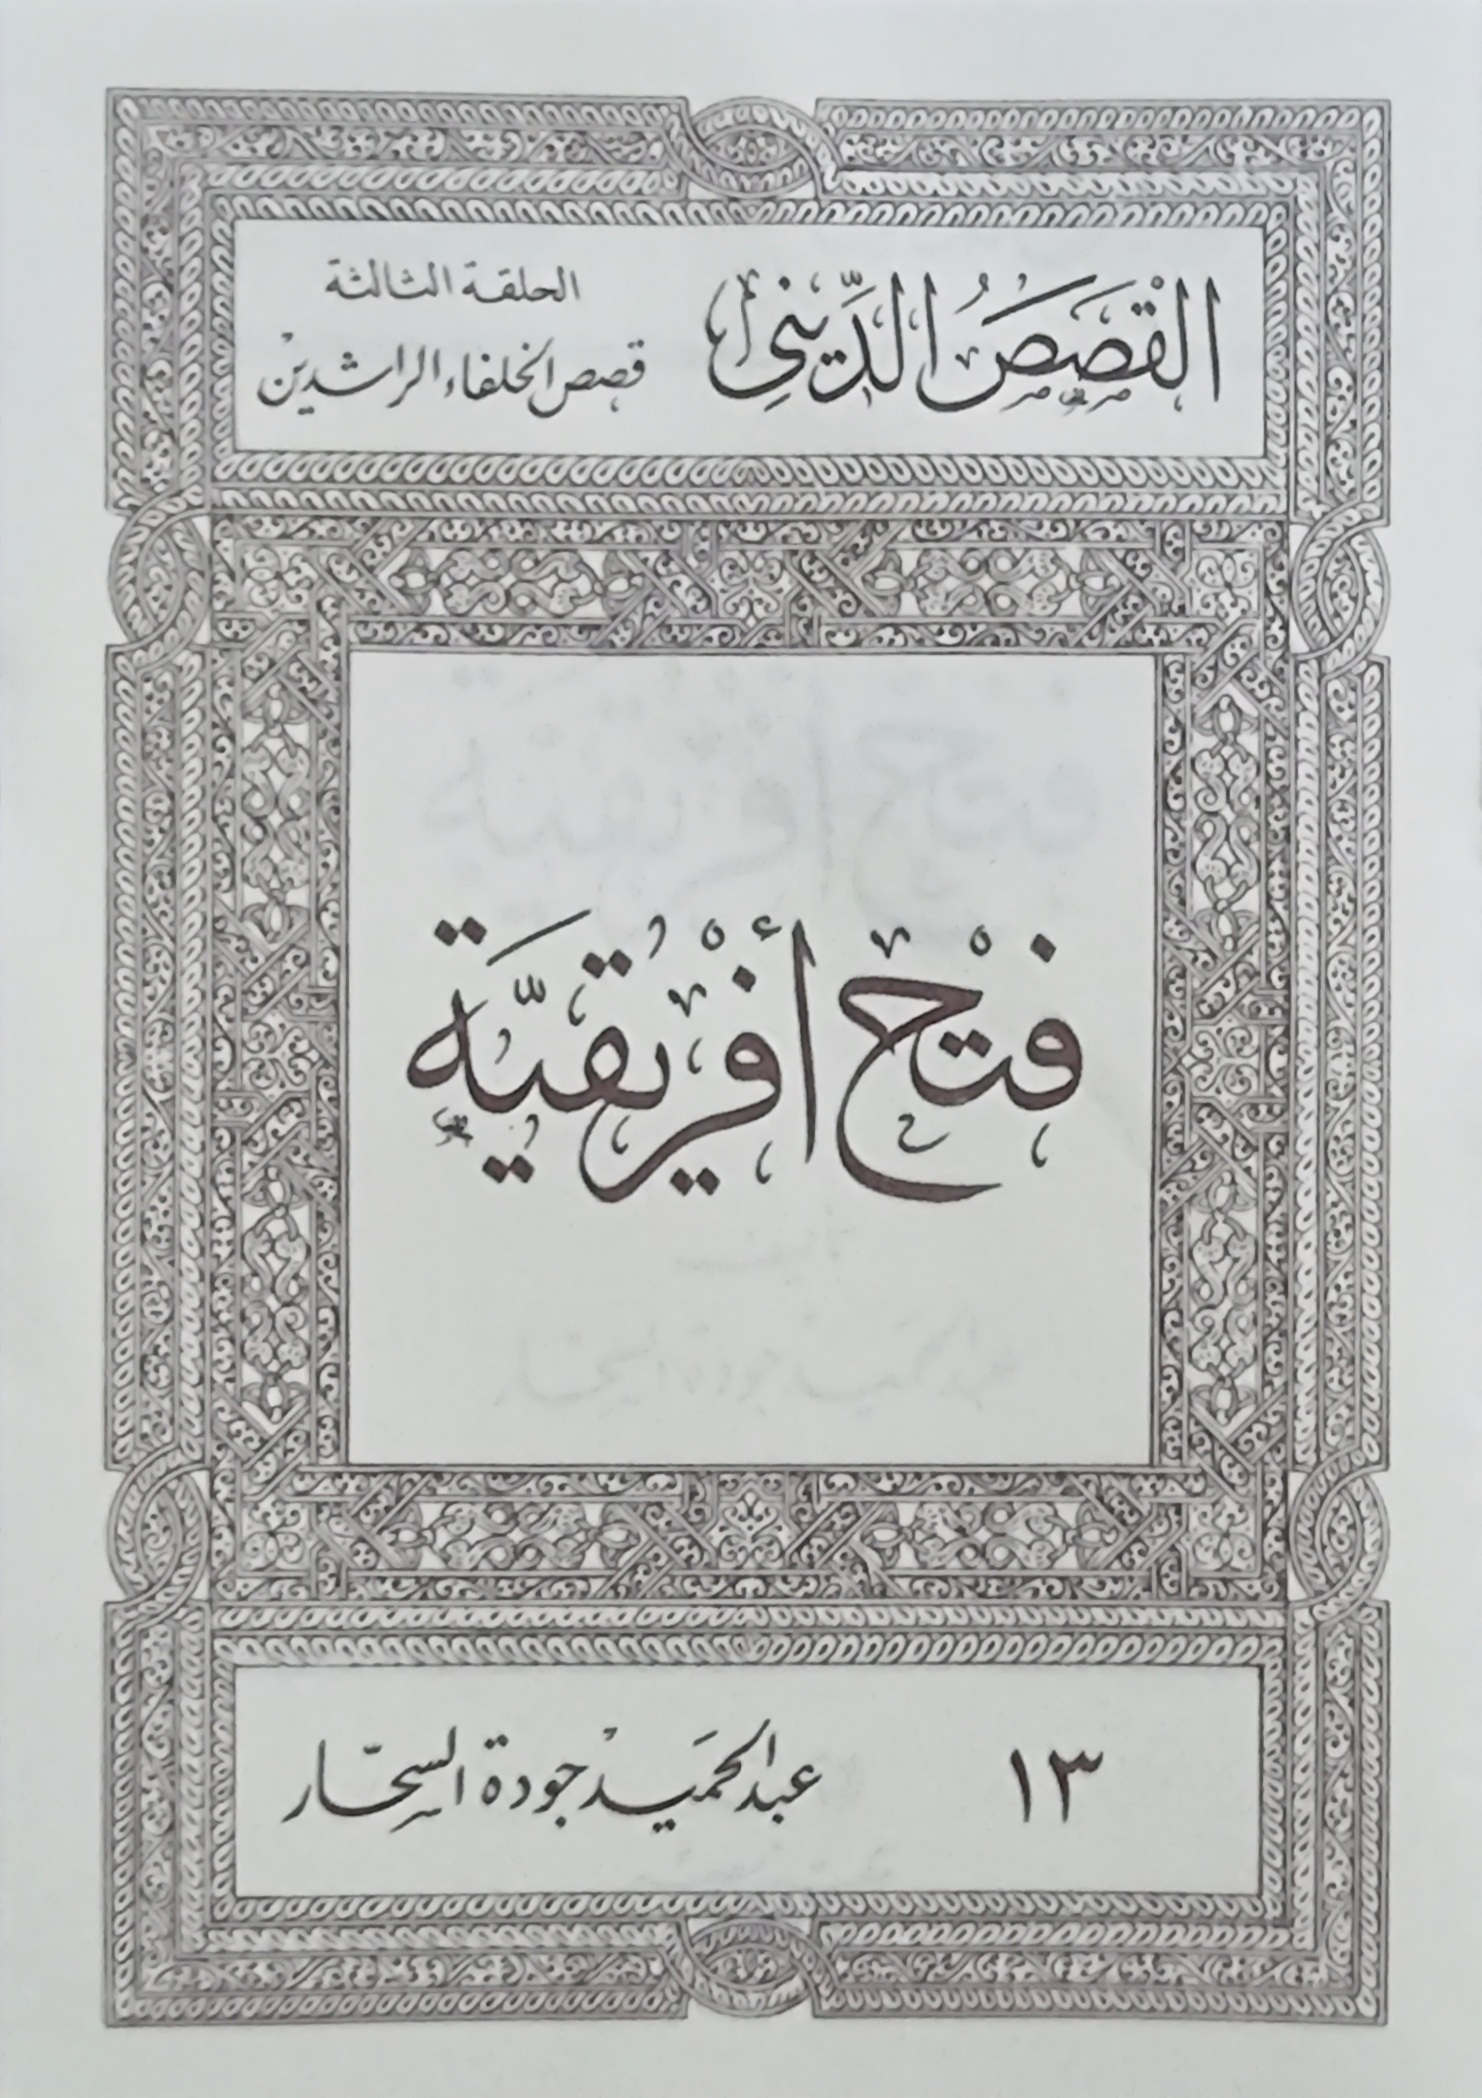 القْصَصُ الدِّينِى
الحلقة الثالثة
قصص الخلفاء الراشدين
فَتْح أفْريقيَّة
١٣
عبد الحَميد جودة السحّار